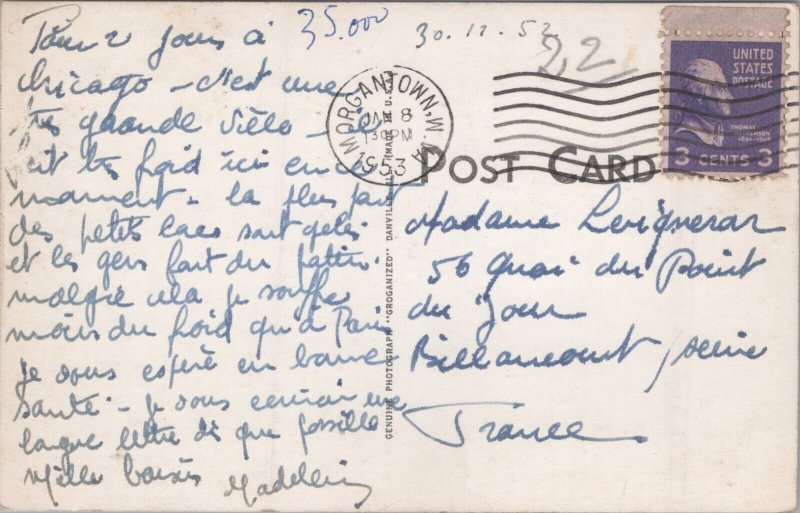 35.000
30.12.52
22
Pour 2 jours à
chicago - c'est une
très grande
fait très froid ici en ce
moment. la plus part
des petits lacs sont gelés
et les gens font du patin.
malgré cela je souffre
moins du froid qu'à Paris
je vous espère en bonne
santé. je vous écrirai une
longue lettre dès que possible
Mille baisers Madeleine
MORGANTOWN, W. VA.
JAN 8
130PM
1953
UNITED
STATES
POSTAGE
THOMAS
JEFFERSON
3 CENTS 3
POST CARD
Madame
56 Quai du Point
du Jour
Billancourt seine
France
GENUINE PHOTOGRAPH "GROGANIZED" DANVILLE MADE IN U.S.